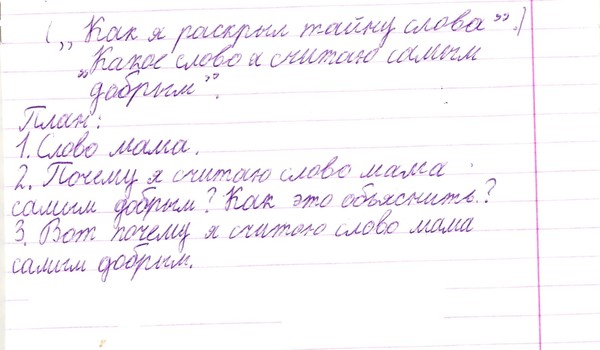 („Как я раскрыл тайну слова".)
„Какое слово я считаю самым
добрым".
План:
1. Слово мама.
2. Почему я считаю слово мама
самым добрым? Как это объяснить?
3. Вот почему я считаю слово мама
самым добрым.